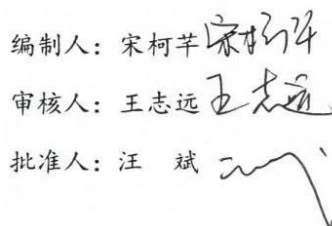 编制人：宋柯芊宋柯芊
审核人：王志远王志远
批准人：汪 斌